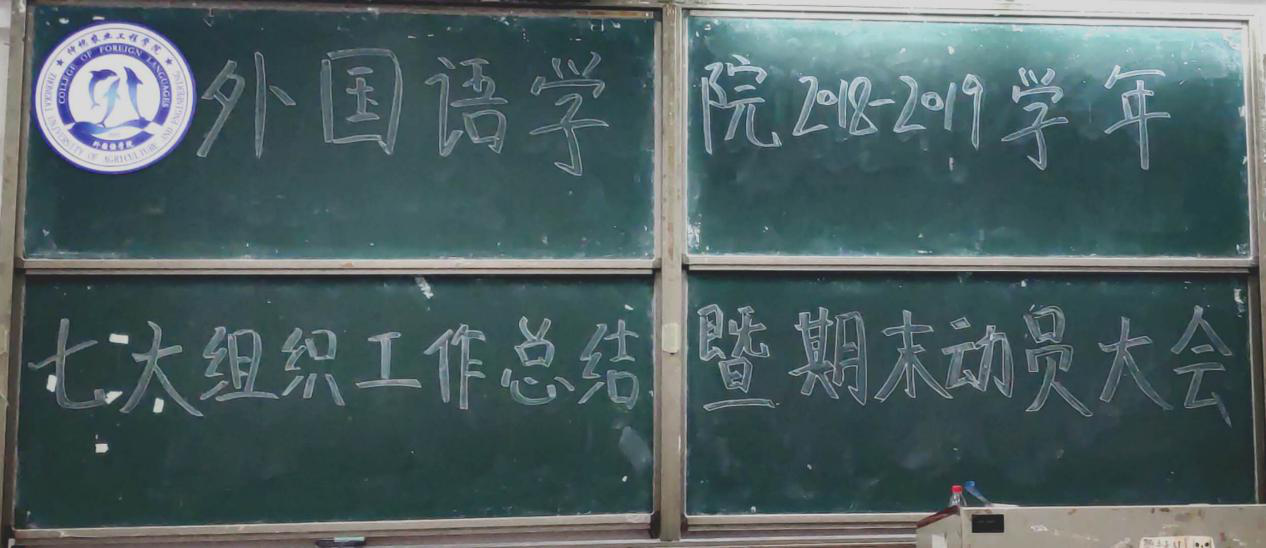 外国语学院2018-2019学年
七大组织工作总结暨期末动员大会
仲恺农业工程学院
COLLEGE OF FOREIGN LANGUAGES
ZHONGKAI UNIVERSITY OF AGRICULTURE AND ENGINEERING
外国语学院